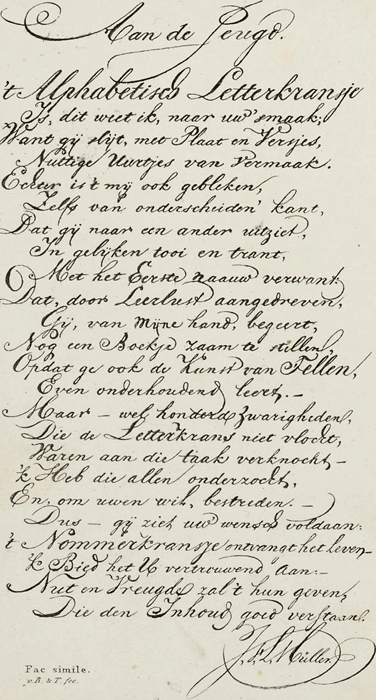 Aan de Jeugd.
't Alphabetisch Letterkransje
Is, dit weet ik, naar uw' smaak;
Want gij slijt, met Plaat en Versjes,
Nuttige Uurtjes van Vermaak.
Echter is 't mij ook gebleken,
Zelfs van onderscheiden' kant,
Dat gij naar een ander uitziet,
In gelijken tooi en trant,
Met het Eerste naauw verwant.
Dat, door Leerlust aangedreven,
Gij, van Mijne hand, begeert,
Nog een Boekje zaam te stellen,
Opdat ge ook de Kunst van Tellen,
Even onderhoudend leert. –
Maar – wel honderd zwarigheden,
Die de Letterkrans niet vlocht,
Waren aan die taak verknocht –
'k Heb die allen onderzocht,
En, om uwen wil, bestreden. –
Dus – gij ziet uw' wensch voldaan:
't Nommerkransje ontvangt het leven –
'k Bied het U vertrouwend aan: –
Nut en Vreugde zal 't hun geven,
Die den Inhoud goed verstaan.
Müller
Fac simile.
v.B. & T. fec.